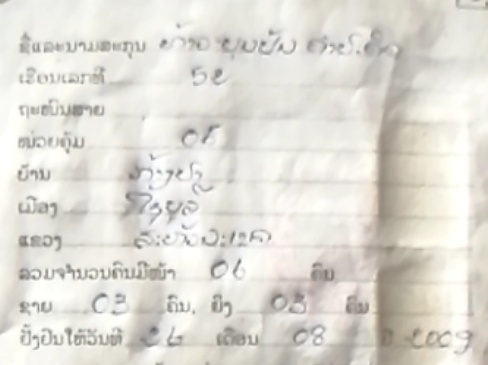 ຊື່ແລະນາມສະກຸນ ທ້າວ ບຸນປັນ
ເຮືອນເລກທີ 52
ຖະໜົນສາຍ
ໜ່ວຍຄຸ້ມ 08
ບ້ານ
ເມືອງ
ແຂວງ ສະຫວັນນະເຂດ
ລວມຈຳນວນຄົນມີໜ້າ 06 ຄົນ
ຊາຍ 03 ຄົນ, ຍິງ 03 ຄົນ
ປັ້ງປືນໃຫ້ວັນທີ 26 ເດືອນ 08 ປີ 2009